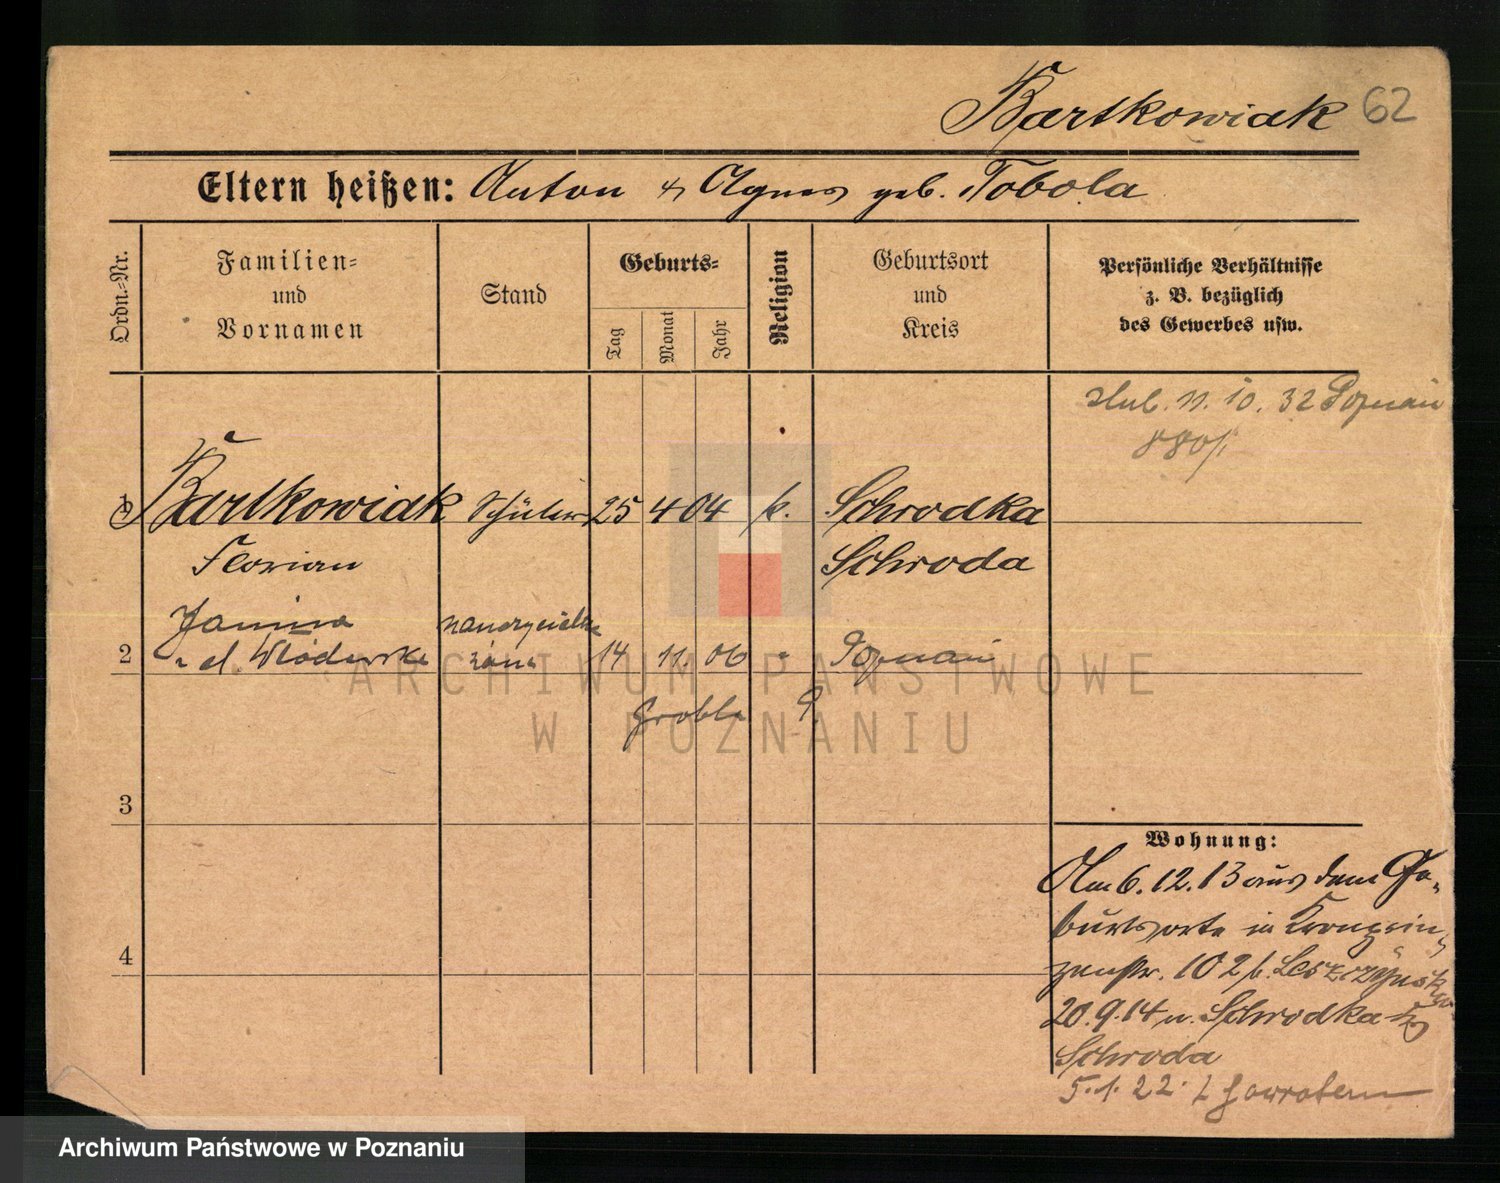 Bartkowiak 62
Eltern heißen: Anton & Agnes geb. Tobola
Ordn.=Nr.
Familien=
und
Vornamen
Stand
Geburts=
Tag
Monat
Jahr
Religion
Geburtsort
und
Kreis
Persönliche Verhältnisse
z. B. bezüglich
des Gewerbes usw.
ślub. 11. 10. 32 Poznań
880/
1 Bartkowiak Schüler 25 4 04 k. Schrodka
Florian Schroda
Janina
2 z d. 14 11. 06 " Poznań
Grobla 9
3
4
Wohnung:
Am 6.12.13 aus dem Ge-
burtsorte in Kronprin-
zenstr. 102 b. Leszczyńsk
20.9.14 n. Schrodka Kr
Schroda
5.1.22.
ARCHIWUM PAŃSTWOWE
W POZNANIU
Archiwum Państwowe w Poznaniu